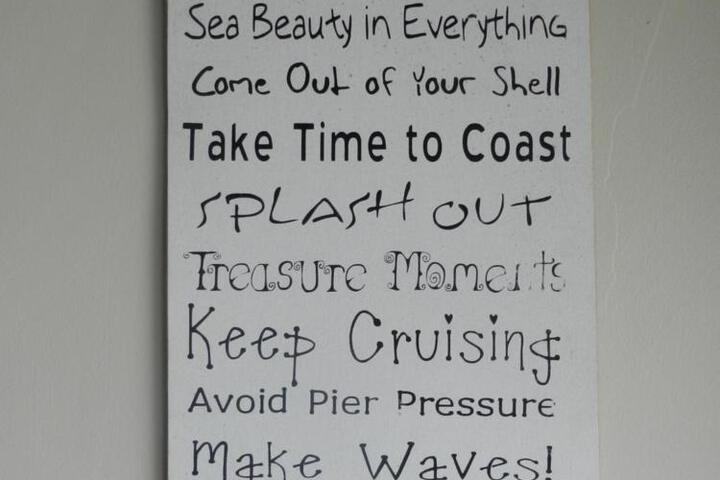 Sea Beauty in Everything
Come Out of Your Shell
Take Time to Coast
SPLASH OUT
Treasure Moments
Keep Cruising
Avoid Pier Pressure
Make Waves!